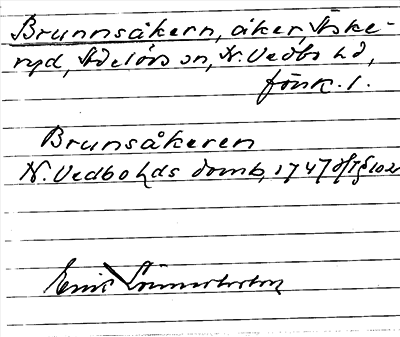 Brunnsåkern, åker, Äske-
ryd, Adelövs sn, N. Vedbo hd,
Jönk. l.
Brunsåkeren
N. Vedbo hds domb, 1747 § 102
Eric